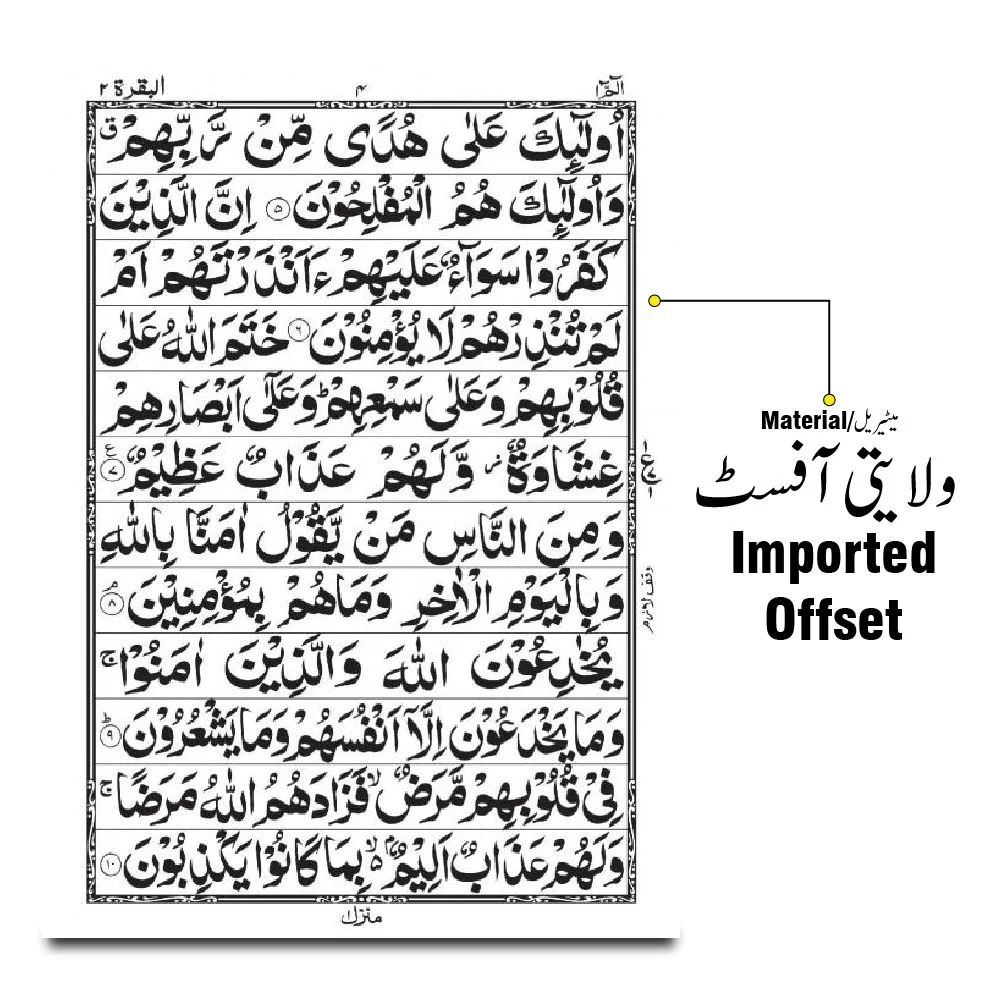 الٓمّٓ ١ ٤ البقرة ٢
اُولٰٓئِكَ عَلٰى هُدًى مِّنْ رَّبِّهِمْ ۗ ق
وَاُولٰٓئِكَ هُمُ الْمُفْلِحُوْنَ ۝٥ اِنَّ الَّذِيْنَ
كَفَرُوْا سَوَآءٌ عَلَيْهِمْ ءَاَنْذَرْتَهُمْ اَمْ
لَمْ تُنْذِرْهُمْ لَا يُؤْمِنُوْنَ ۝٦ خَتَمَ اللّٰهُ عَلٰى
قُلُوْبِهِمْ وَعَلٰى سَمْعِهِمْ ؕ وَعَلٰٓى اَبْصَارِهِمْ
غِشَاوَةٌ ز وَّلَهُمْ عَذَابٌ عَظِيْمٌ ۝٧ ع
وَمِنَ النَّاسِ مَنْ يَّقُوْلُ اٰمَنَّا بِاللّٰهِ
وَبِالْيَوْمِ الْاٰخِرِ وَمَا هُمْ بِمُؤْمِنِيْنَ ۝٨ م
وقف لازم
يُخٰدِعُوْنَ اللّٰهَ وَالَّذِيْنَ اٰمَنُوْا ج
وَمَا يَخْدَعُوْنَ اِلَّآ اَنْفُسَهُمْ وَمَا يَشْعُرُوْنَ ۝٩ ط
فِيْ قُلُوْبِهِمْ مَّرَضٌ لا فَزَادَهُمُ اللّٰهُ مَرَضًا ج
وَلَهُمْ عَذَابٌ اَلِيْمٌ ۢ ۵ لا بِمَا كَانُوْا يَكْذِبُوْنَ ۝١٠
منزل
Material/میٹیریل
ولایتی آفسٹ
Imported
Offset